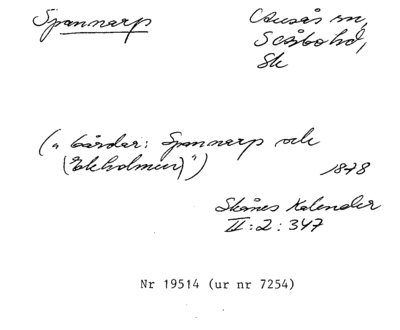 Spannarp
Ausås sn,
S Åsbo hd,
Sk
("Gårdar: Spannarp och
(Ekholmen)")
1878
Skånes Kalender
II:2:347
Nr 19514 (ur nr 7254)